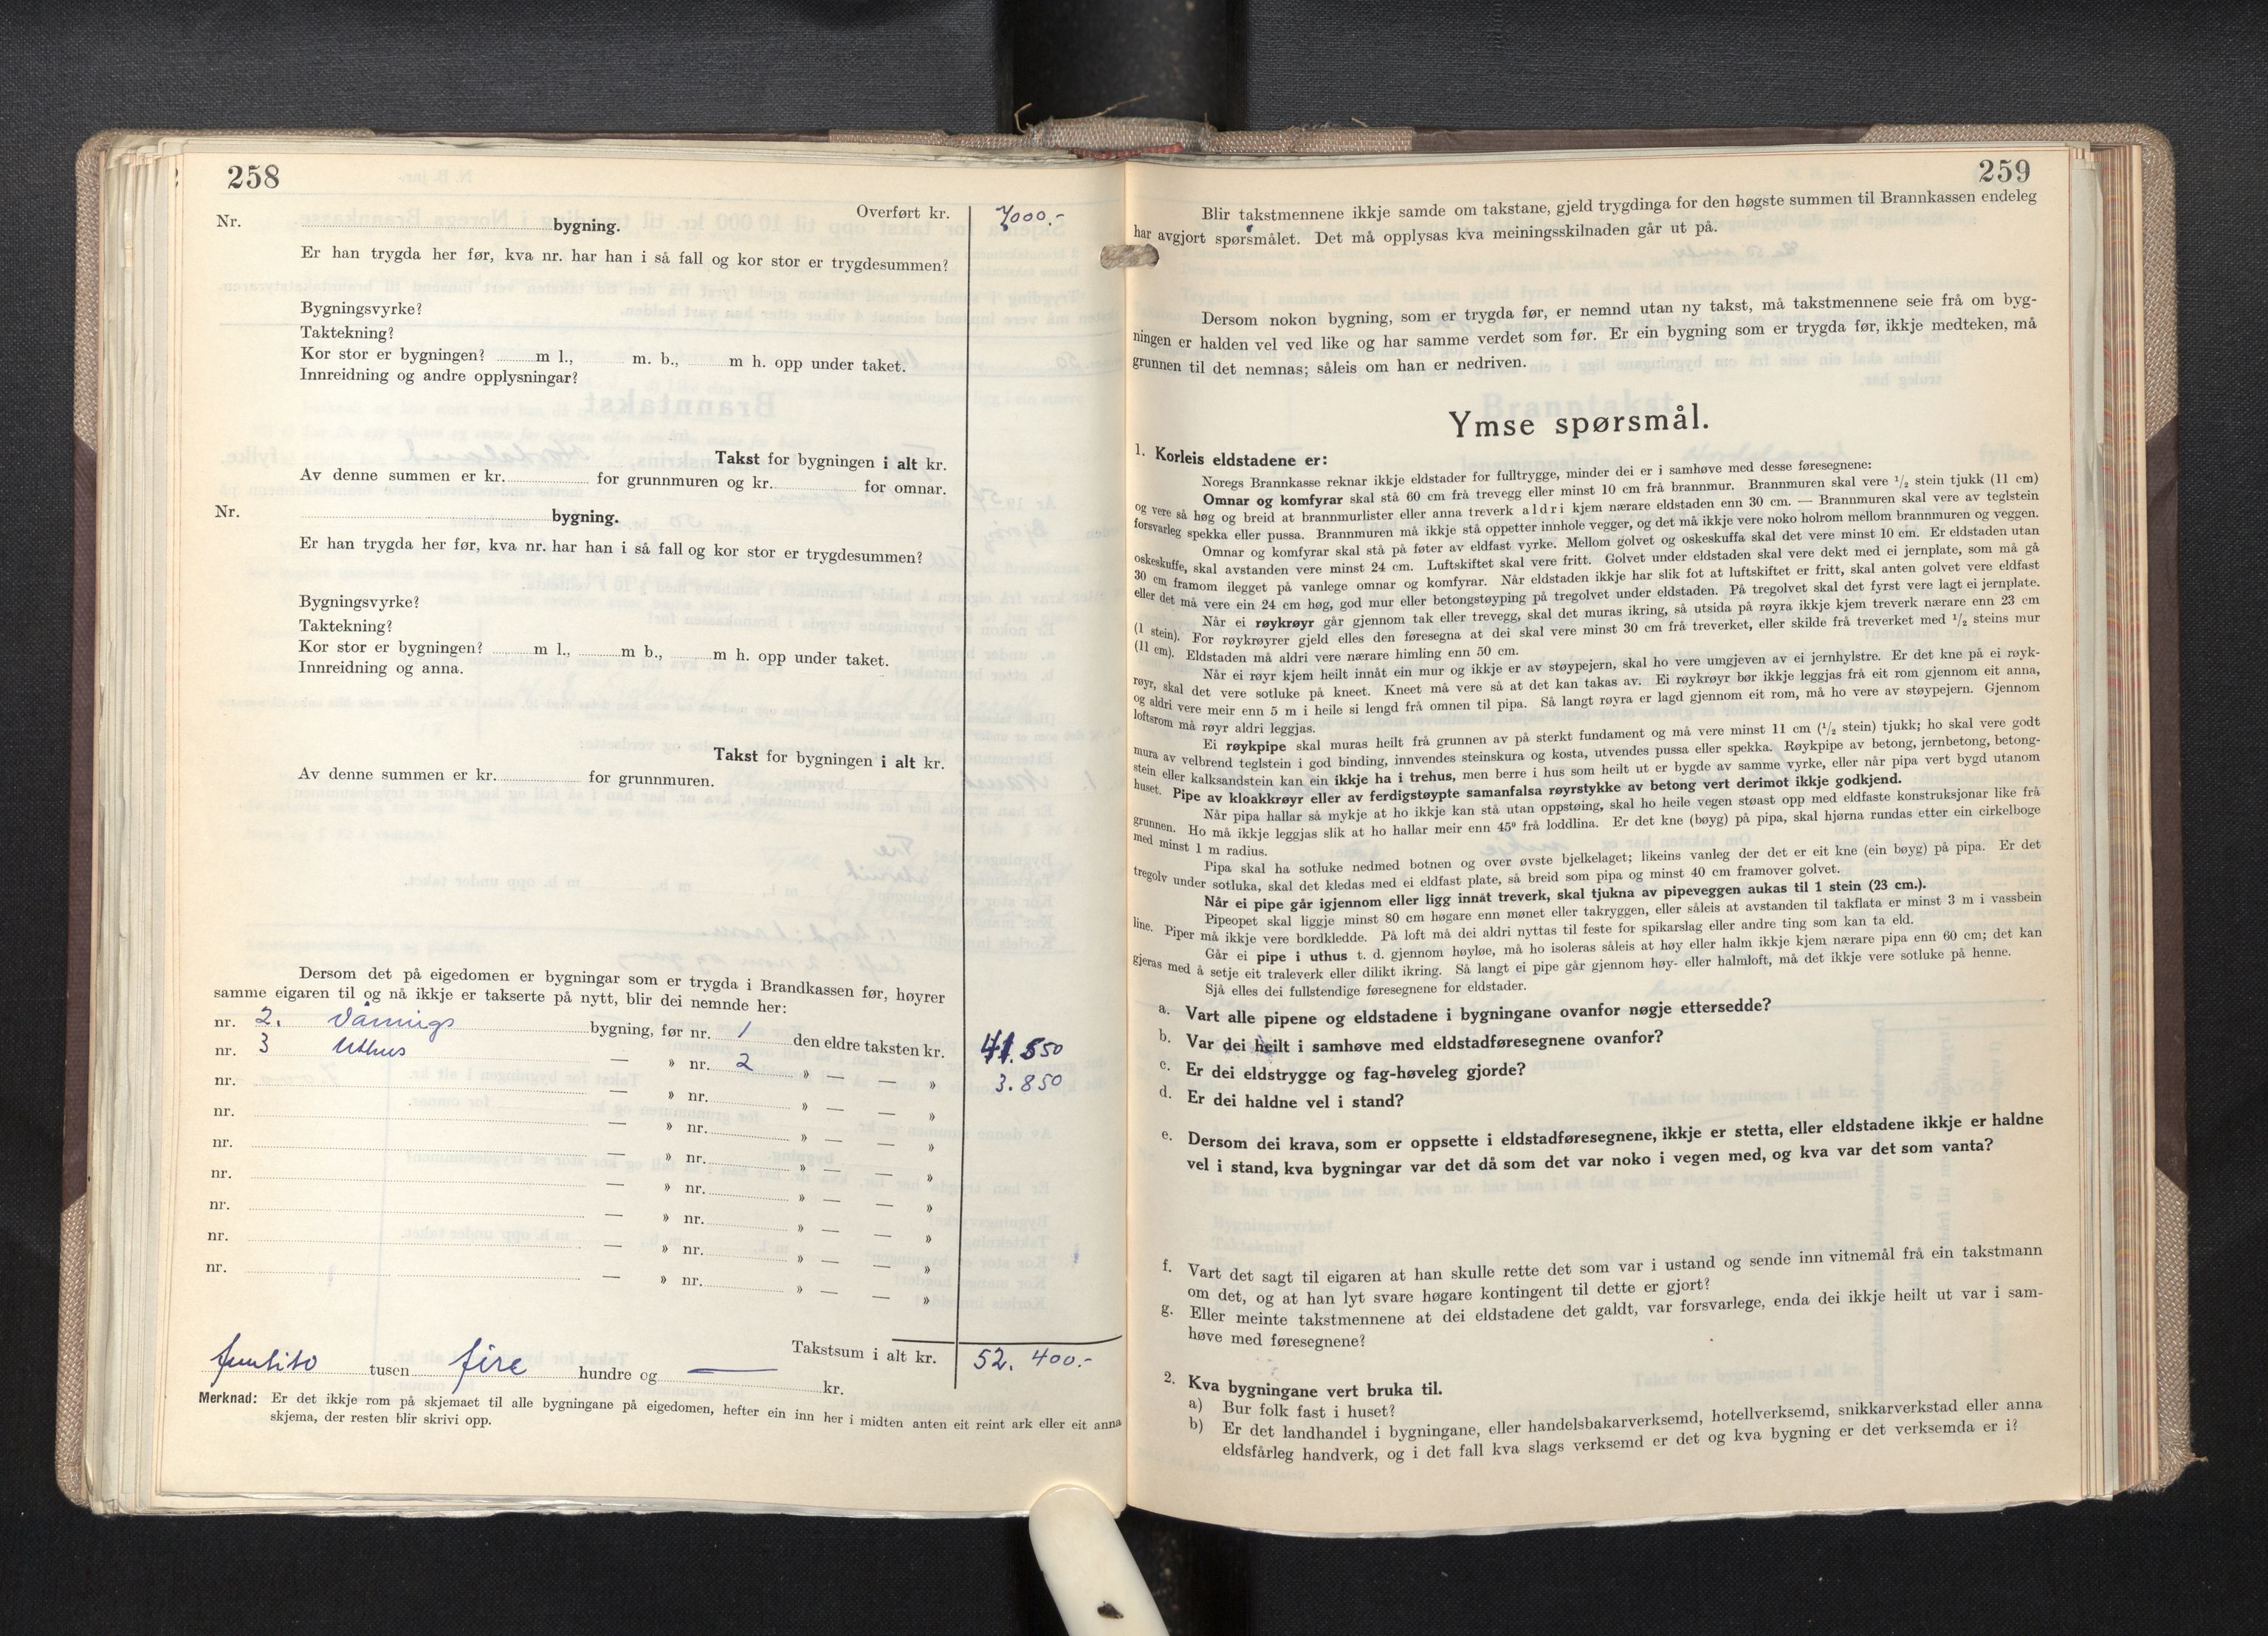 258
Overført kr. 7000.-
Nr. bygning.
Er han trygda her før, kva nr. har han i så fall og kor stor er trygdesummen?
Bygningsvyrke?
Taktekning?
Kor stor er bygningen? m l., m. b., m h. opp under taket.
Innreidning og andre opplysningar?
Takst for bygningen i alt kr.
Av denne summen er kr. for grunnmuren og kr. for omnar.
Nr. bygning.
Er han trygda her før, kva nr. har han i så fall og kor stor er trygdesummen?
Bygningsvyrke?
Taktekning?
Kor stor er bygningen? m l., m b., m h. opp under taket.
Innreidning og anna.
Takst for bygningen i alt kr.
Av denne summen er kr. for grunnmuren.
Dersom det på eigedomen er bygningar som er trygda i Brandkassen før, høyrer
samme eigaren til og nå ikkje er takserte på nytt, blir dei nemnde her:
nr. 2. Vånings bygning, før nr. 1 den eldre taksten kr. 41.550
nr. 3 Uthus — » nr. 2 » — — » 3.850
nr. — » nr. » — — »
nr. — » nr. » — — »
nr. — » nr. » — — »
nr. — » nr. » — — »
nr. — » nr. » — — »
nr. — » nr. » — — »
nr. — » nr. » — — »
Takstsum i alt kr. 52.400.-
femtito tusen fire hundre og — kr.
Merknad: Er det ikkje rom på skjemaet til alle bygningane på eigedomen, hefter ein inn her i midten anten eit reint ark eller eit anna
skjema, der resten blir skrivi opp.
259
Blir takstmennene ikkje samde om takstane, gjeld trygdinga for den høgste summen til Brannkassen endeleg
har avgjort spørsmålet. Det må opplysas kva meiningsskilnaden går ut på.
Dersom nokon bygning, som er trygda før, er nemnd utan ny takst, må takstmennene seie frå om byg-
ningen er halden vel ved like og har samme verdet som før. Er ein bygning som er trygda før, ikkje medteken, må
grunnen til det nemnas; såleis om han er nedriven.
Ymse spørsmål.
1. Korleis eldstadene er:
Noregs Brannkasse reknar ikkje eldstader for fulltrygge, minder dei er i samhøve med desse føresegnene:
Omnar og komfyrar skal stå 60 cm frå trevegg eller minst 10 cm frå brannmur. Brannmuren skal vere 1/2 stein tjukk (11 cm)
og vere så høg og breid at brannmurlister eller anna treverk aldri kjem nærare eldstaden enn 30 cm. — Brannmuren skal vere av teglstein
forsvarleg spekka eller pussa. Brannmuren må ikkje stå oppetter innhole vegger, og det må ikkje vere noko holrom mellom brannmuren og veggen.
Omnar og komfyrar skal stå på føter av eldfast vyrke. Mellom golvet og oskeskuffa skal det vere minst 10 cm. Er eldstaden utan
oskeskuffe, skal avstanden vere minst 24 cm. Luftskiftet skal vere fritt. Golvet under eldstaden skal vere dekt med ei jernplate, som må gå
30 cm framom ilegget på vanlege omnar og komfyrar. Når eldstaden ikkje har slik fot at luftskiftet er fritt, skal anten golvet vere eldfast
eller det må vere ein 24 cm høg, god mur eller betongstøyping på tregolvet under eldstaden. På tregolvet skal det fyrst vere lagt ei jernplate.
Når ei røykrøyr går gjennom tak eller trevegg, skal det muras ikring, så utsida på røyra ikkje kjem treverk nærare enn 23 cm
(1 stein). For røykrøyrer gjeld elles den føresegna at dei skal vere minst 30 cm frå treverket, eller skilde frå treverket med 1/2 steins mur
(11 cm). Eldstaden må aldri vere nærare himling enn 50 cm.
Når ei røyr kjem heilt innåt ein mur og ikkje er av støypejern, skal ho vere umgjeven av ei jernhylstre. Er det kne på ei røyk-
røyr, skal det vere sotluke på kneet. Kneet må vere så at det kan takas av. Ei røykrøyr bør ikkje leggjas frå eit rom gjennom eit anna,
og aldri vere meir enn 5 m i heile si lengd frå omnen til pipa. Så langt røyra er lagd gjennom eit rom, må ho vere av støypejern. Gjennom
loftsrom må røyr aldri leggjas.
Ei røykpipe skal muras heilt frå grunnen av på sterkt fundament og må vere minst 11 cm (1/2 stein) tjukk; ho skal vere godt
mura av velbrend teglstein i god binding, innvendes steinskura og kosta, utvendes pussa eller spekka. Røykpipe av betong, jernbetong, betong-
stein eller kalksandstein kan ein ikkje ha i trehus, men berre i hus som heilt ut er bygde av samme vyrke, eller når pipa vert bygd utanom
huset. Pipe av kloakkrøyr eller av ferdigstøypte samanfalsa røyrstykke av betong vert derimot ikkje godkjend.
Når pipa hallar så mykje at ho ikkje kan stå utan oppstøing, skal ho heile vegen støast opp med eldfaste konstruksjonar like frå
grunnen. Ho må ikkje leggjas slik at ho hallar meir enn 45° frå loddlina. Er det kne (bøyg) på pipa, skal hjørna rundas etter ein cirkelboge
med minst 1 m radius.
Pipa skal ha sotluke nedmed botnen og over øvste bjelkelaget; likeins vanleg der det er eit kne (ein bøyg) på pipa. Er det
tregolv under sotluka, skal det kledas med ei eldfast plate, så breid som pipa og minst 40 cm framover golvet.
Når ei pipe går igjennom eller ligg innåt treverk, skal tjukna av pipeveggen aukas til 1 stein (23 cm.).
Pipeopet skal liggje minst 80 cm høgare enn mønet eller takryggen, eller såleis at avstanden til takflata er minst 3 m i vassbein
line. Piper må ikkje vere bordkledde. På loft må dei aldri nyttas til feste for spikarslag eller andre ting som kan ta eld.
Går ei pipe i uthus t. d. gjennom høyløe, må ho isoleras såleis at høy eller halm ikkje kjem nærare pipa enn 60 cm; det kan
gjeras med å setje eit traleverk eller dilikt ikring. Så langt ei pipe går gjennom høy- eller halmloft, må det ikkje vere sotluke på henne.
Sjå elles dei fullstendige føresegnene for eldstader.
a. Vart alle pipene og eldstadene i bygningane ovanfor nøgje ettersedde?
b. Var dei heilt i samhøve med eldstadføresegnene ovanfor?
c. Er dei eldstrygge og fag-høveleg gjorde?
d. Er dei haldne vel i stand?
e. Dersom dei krava, som er oppsette i eldstadføresegnene, ikkje er stetta, eller eldstadene ikkje er haldne
vel i stand, kva bygningar var det då som det var noko i vegen med, og kva var det som vanta?
f. Vart det sagt til eigaren at han skulle rette det som var i ustand og sende inn vitnemål frå ein takstmann
om det, og at han lyt svare høgare kontingent til dette er gjort?
g. Eller meinte takstmennene at dei eldstadene det galdt, var forsvarlege, enda dei ikkje heilt ut var i sam-
høve med føresegnene?
2. Kva bygningane vert bruka til.
a) Bur folk fast i huset?
b) Er det landhandel i bygningane, eller handelsbakarverksemd, hotellverksemd, snikkarverkstad eller anna
eldsfårleg handverk, og i det fall kva slags verksemd er det og kva bygning er det verksemda er i?